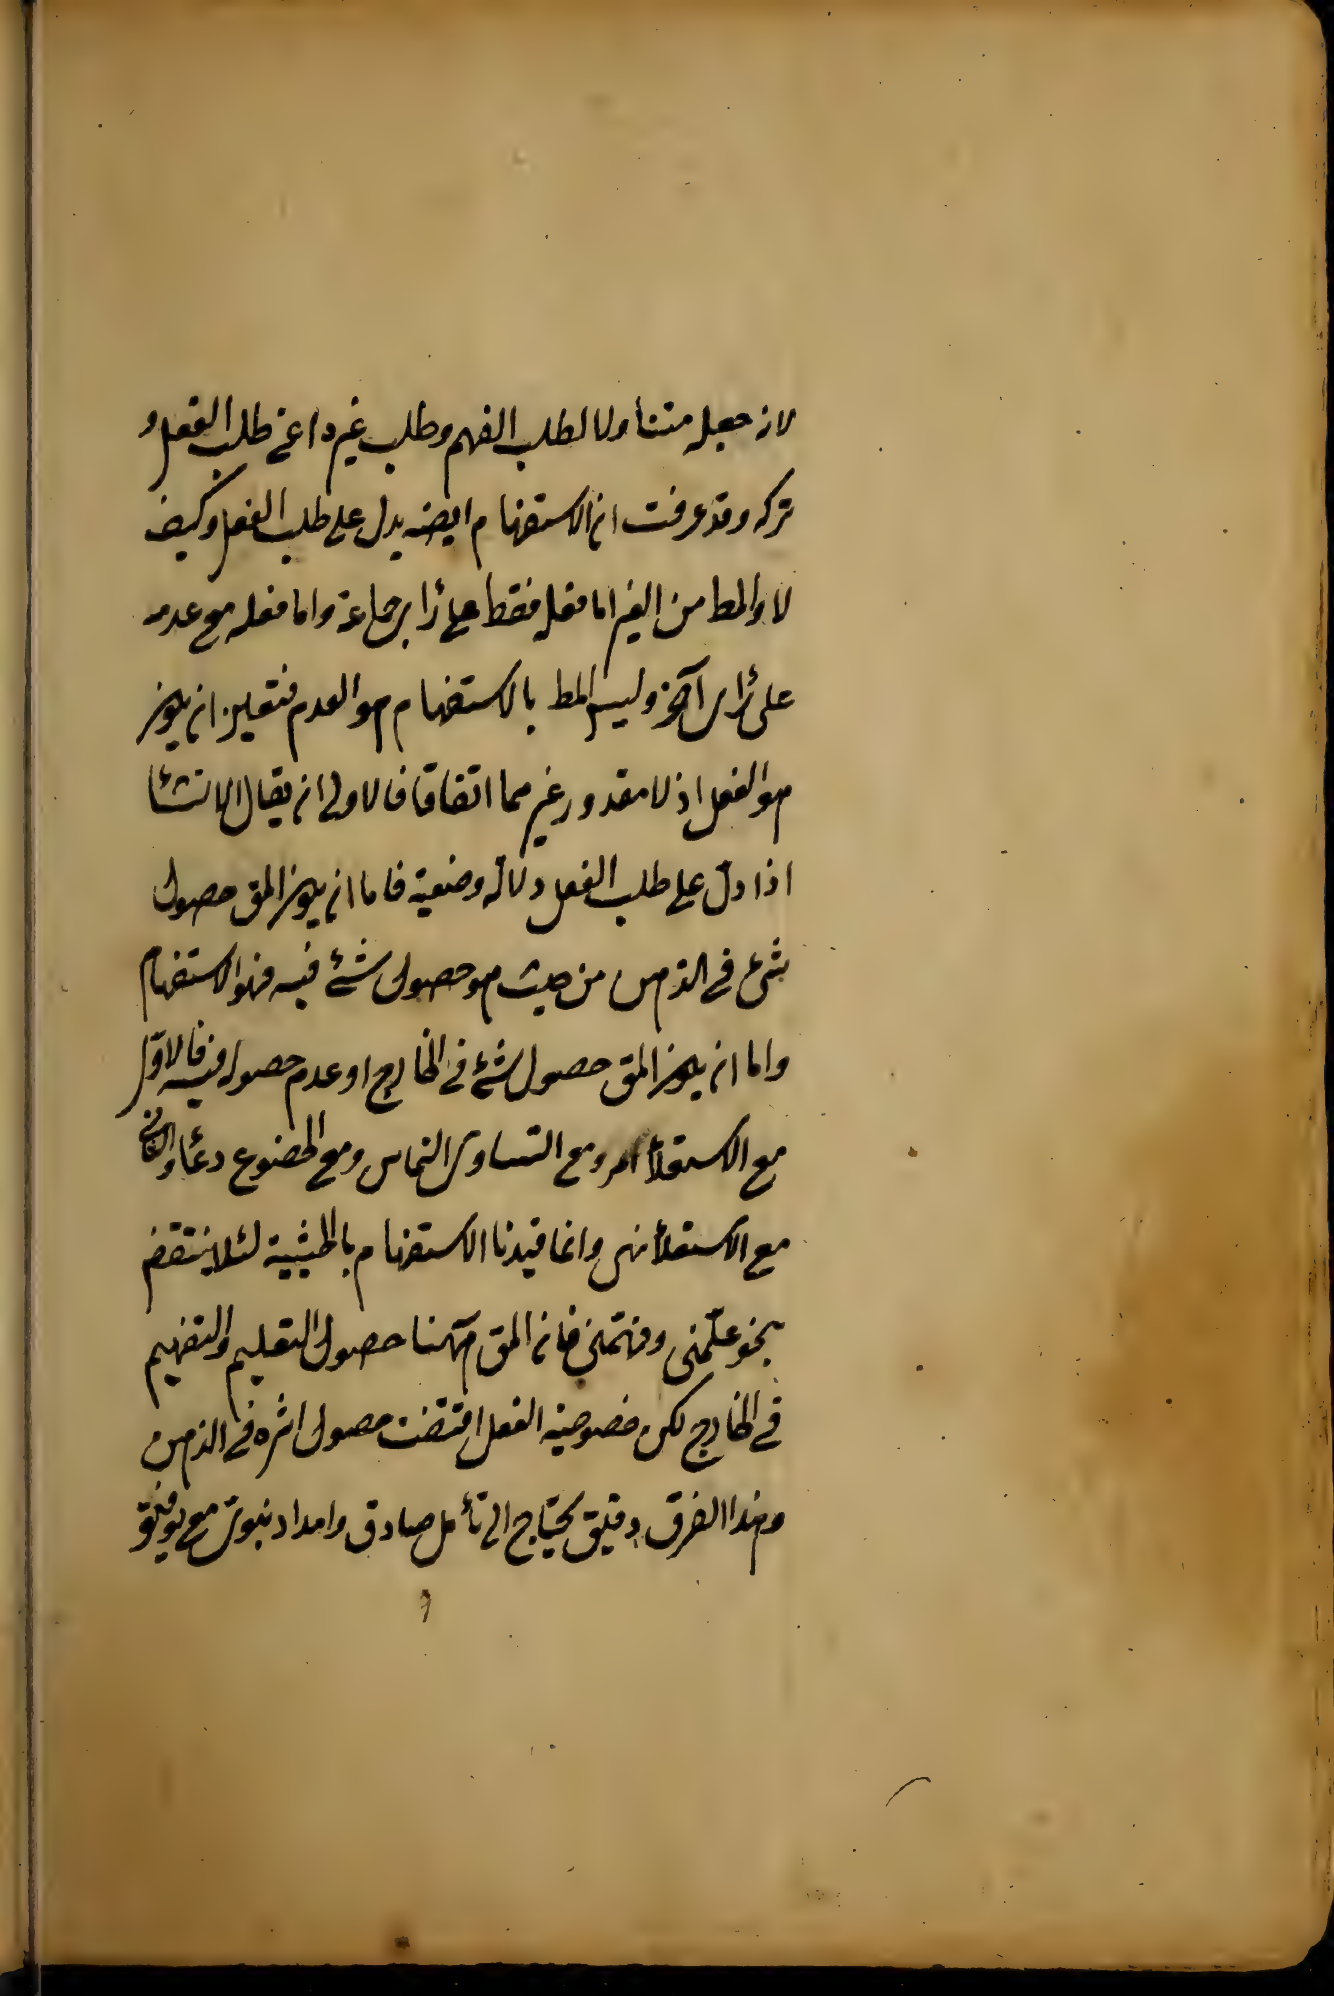 لانه جعله متناولا لطلب الفهم وطلب غيره اعنى طلب الفعل و
تركه وقد عرفت ان الاستفهام ايضه يدل على طلب الفعل وكيف
لا والمط من الغير اما فعله فقط على رأى جماعة واما فعله مع عدمه
على رأى آخر وليس المط بالاستفهام هو العدم فتعين ان يكون
هو الفعل اذ لا مقدور غيرهما اتفاقا فالاولى ان يقال الانشا
اذا دل على طلب الفعل دلالة وضعية فاما ان يكون المق حصول
شئ فى الذهن من حيث هو حصول شئ فيه فهو الاستفهام
واما ان يكون المق حصول شئ فى الخارج او عدم حصوله فيه فالاول
مع الاستعلأ امر ومع التساوى التماس ومع الخضوع دعأ والثانى
مع الاستعلأ نهى وانما قيدنا الاستفهام بالحيثية لئلا ينتقض
بنحو علّمنى وفهّمنى فان المق ههنا حصول التعليم والتفهيم
فى الخارج لكن خصوصية الفعل اقتضت حصول اثره فى الذهن
وهذا الفرق دقيق يحتاج الى تأمل صادق وامداد نبوى مع توفيق